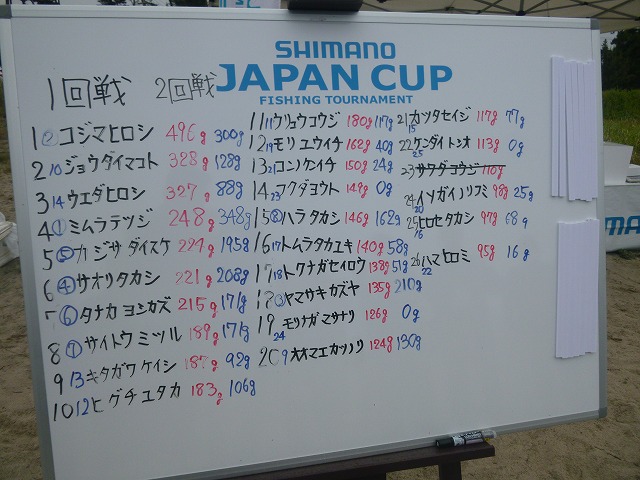 SHIMANO
JAPAN CUP
FISHING TOURNAMENT
1回戦 2回戦
1 ② コジマヒロシ 496g 300g
2 10 ジョウダイマコト 328g 128g
3 14 ウエダヒロシ 327g 88g
4 ① ミムラテツジ 248g 348g
5 ⑤ カジサダイスケ 224g 195g
6 ④ サオリタカシ 221g 208g
7 ⑥ タナカヨシカズ 215g 171g
8 ⑦ サイトウミツル 189g 171g
9 13 キタガワケイシ 187g 92g
10 12 ヒグチユタカ 183g 106g
11 11 ウリュウコウジ 180g 117g
12 19 モリエウイチ 162g 40g
13 21 コンノケンイチ 150g 24g
14 23 フクダヨウト 149g 0g
15 ⑧ ハラタカシ 146g 162g
16 17 トムラタカユキ 140g 58g
17 18 トクナガセイロウ 138g 51g
18 ③ ヤマサキカズヤ 135g 210g
19 24 モリナガマサナリ 126g 0g
20 9 オオマエカツノリ 124g 130g
21 15 カツタセイジ 117g 77g
22 25 ケンダイトシオ 113g 0g
23 サワダヨウジ 110g
24 20 イソガイノリフミ 98g 25g
25 16 ヒロセタカシ 97g 68g
26 22 ハマヒロミ 95g 16g